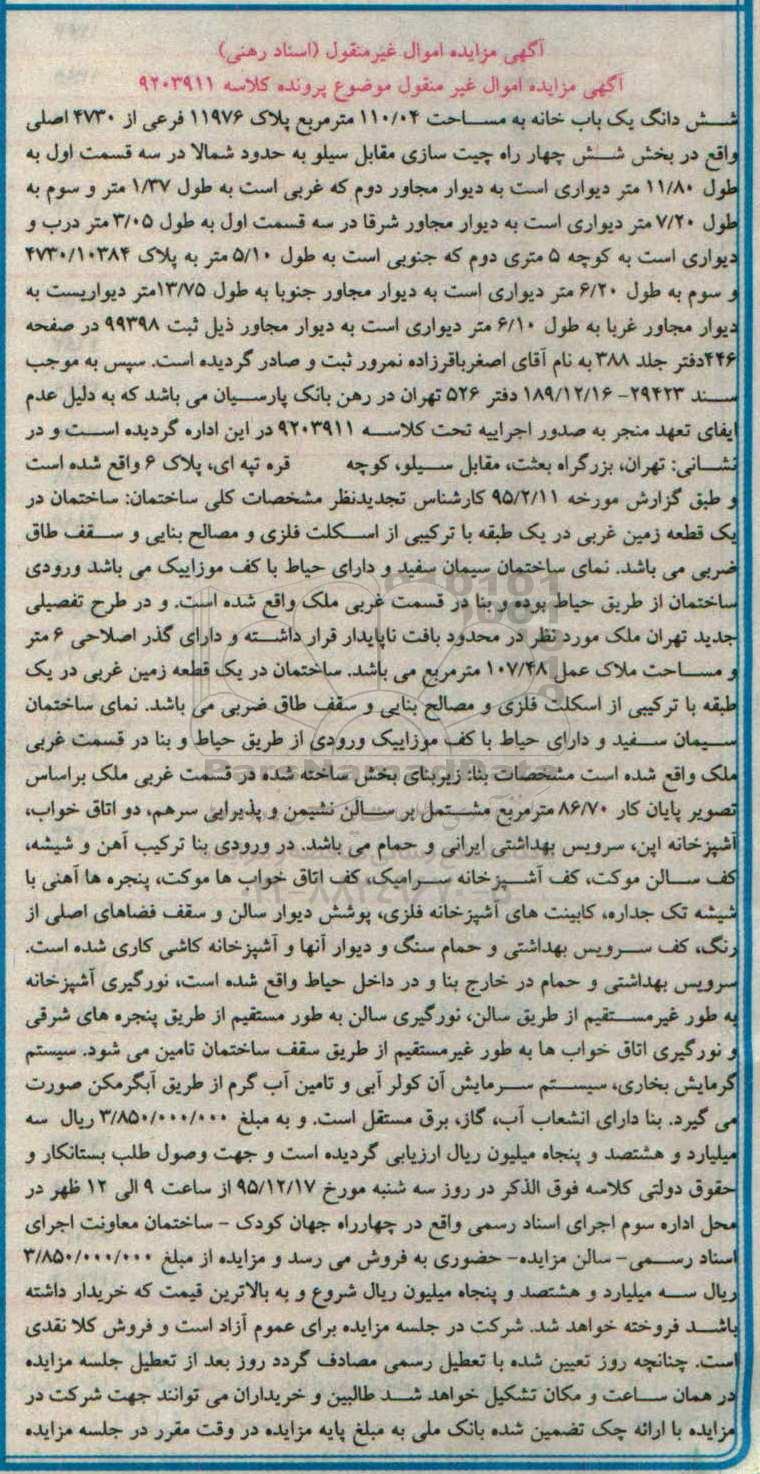 آگهی مزایده اموال غیرمنقول (اسناد رهنی)
آگهی مزایده اموال غیر منقول موضوع پرونده کلاسه ۹۲۰۳۹۱۱
شش دانگ یک باب خانه به مساحت ۱۱۰/۰۴ مترمربع پلاک ۱۱۹۷۶ فرعی از ۴۷۳۰ اصلی
واقع در بخش شش چهار راه چیت سازی مقابل سیلو به حدود شمالا در سه قسمت اول به
طول ۱۱/۸۰ متر دیواری است به دیوار مجاور دوم که غربی است به طول ۱/۳۷ متر و سوم به
طول ۷/۲۰ متر دیواری است به دیوار مجاور شرقا در سه قسمت اول به طول ۳/۰۵ متر درب و
دیواری است به کوچه ۵ متری دوم که جنوبی است به طول ۵/۱۰ متر به پلاک ۴۷۳۰/۱۰۳۸۴
و سوم به طول ۶/۲۰ متر دیواری است به دیوار مجاور جنوبا به طول ۱۳/۷۵متر دیواریست به
دیوار مجاور غربا به طول ۶/۱۰ متر دیواری است به دیوار مجاور ذیل ثبت ۹۹۳۹۸ در صفحه
۴۴۶دفتر جلد ۳۸۸ به نام آقای اصغرباقرزاده نمرور ثبت و صادر گردیده است. سپس به موجب
سند ۲۹۴۲۳- ۱۸۹/۱۲/۱۶ دفتر ۵۲۶ تهران در رهن بانک پارسیان می باشد که به دلیل عدم
ایفای تعهد منجر به صدور اجراییه تحت کلاسه ۹۲۰۳۹۱۱ در این اداره گردیده است و در
نشانی: تهران، بزرگراه بعثت، مقابل سیلو، کوچه قره تپه ای، پلاک ۶ واقع شده است
و طبق گزارش مورخه ۹۵/۲/۱۱ کارشناس تجدیدنظر مشخصات کلی ساختمان: ساختمان در
یک قطعه زمین غربی در یک طبقه با ترکیبی از اسکلت فلزی و مصالح بنایی و سقف طاق
ضربی می باشد. نمای ساختمان سیمان سفید و دارای حیاط با کف موزاییک می باشد ورودی
ساختمان از طریق حیاط بوده و بنا در قسمت غربی ملک واقع شده است. و در طرح تفصیلی
جدید تهران ملک مورد نظر در محدود بافت ناپایدار قرار داشته و دارای گذر اصلاحی ۶ متر
و مساحت ملاک عمل ۱۰۷/۴۸ مترمربع می باشد. ساختمان در یک قطعه زمین غربی در یک
طبقه با ترکیبی از اسکلت فلزی و مصالح بنایی و سقف طاق ضربی می باشد. نمای ساختمان
سیمان سفید و دارای حیاط با کف موزاییک ورودی از طریق حیاط و بنا در قسمت غربی
ملک واقع شده است مشخصات بنا: زیربنای بخش ساخته شده در قسمت غربی ملک براساس
تصویر پایان کار ۸۶/۷۰ مترمربع مشتمل بر سالن نشیمن و پذیرایی سرهم، دو اتاق خواب،
آشپزخانه اپن، سرویس بهداشتی ایرانی و حمام می باشد. در ورودی بنا ترکیب آهن و شیشه،
کف سالن موکت، کف آشپزخانه سرامیک، کف اتاق خواب ها موکت، پنجره ها آهنی با
شیشه تک جداره، کابینت های آشپزخانه فلزی، پوشش دیوار سالن و سقف فضاهای اصلی از
رنگ، کف سرویس بهداشتی و حمام سنگ و دیوار آنها و آشپزخانه کاشی کاری شده است.
سرویس بهداشتی و حمام در خارج بنا و در داخل حیاط واقع شده است، نورگیری آشپزخانه
به طور غیرمستقیم از طریق سالن، نورگیری سالن به طور مستقیم از طریق پنجره های شرقی
و نورگیری اتاق خواب ها به طور غیرمستقیم از طریق سقف ساختمان تامین می شود. سیستم
گرمایش بخاری، سیستم سرمایش آن کولر آبی و تامین آب گرم از طریق آبگرمکن صورت
می گیرد. بنا دارای انشعاب آب، گاز، برق مستقل است. و به مبلغ ۳/۸۵۰/۰۰۰/۰۰۰ ریال سه
میلیارد و هشتصد و پنجاه میلیون ریال ارزیابی گردیده است و جهت وصول طلب بستانکار و
حقوق دولتی کلاسه فوق الذکر در روز سه شنبه مورخ ۹۵/۱۲/۱۷ از ساعت ۹ الی ۱۲ ظهر در
محل اداره سوم اجرای اسناد رسمی واقع در چهارراه جهان کودک - ساختمان معاونت اجرای
اسناد رسمی- سالن مزایده- حضوری به فروش می رسد و مزایده از مبلغ ۳/۸۵۰/۰۰۰/۰۰۰
ریال سه میلیارد و هشتصد و پنجاه میلیون ریال شروع و به بالاترین قیمت که خریدار داشته
باشد فروخته خواهد شد. شرکت در جلسه مزایده برای عموم آزاد است و فروش کلا نقدی
است. چنانچه روز تعیین شده با تعطیل رسمی مصادف گردد روز بعد از تعطیل جلسه مزایده
در همان ساعت و مکان تشکیل خواهد شد طالبین و خریداران می توانند جهت شرکت در
مزایده با ارائه چک تضمین شده بانک ملی به مبلغ پایه مزایده در وقت مقرر در جلسه مزایده